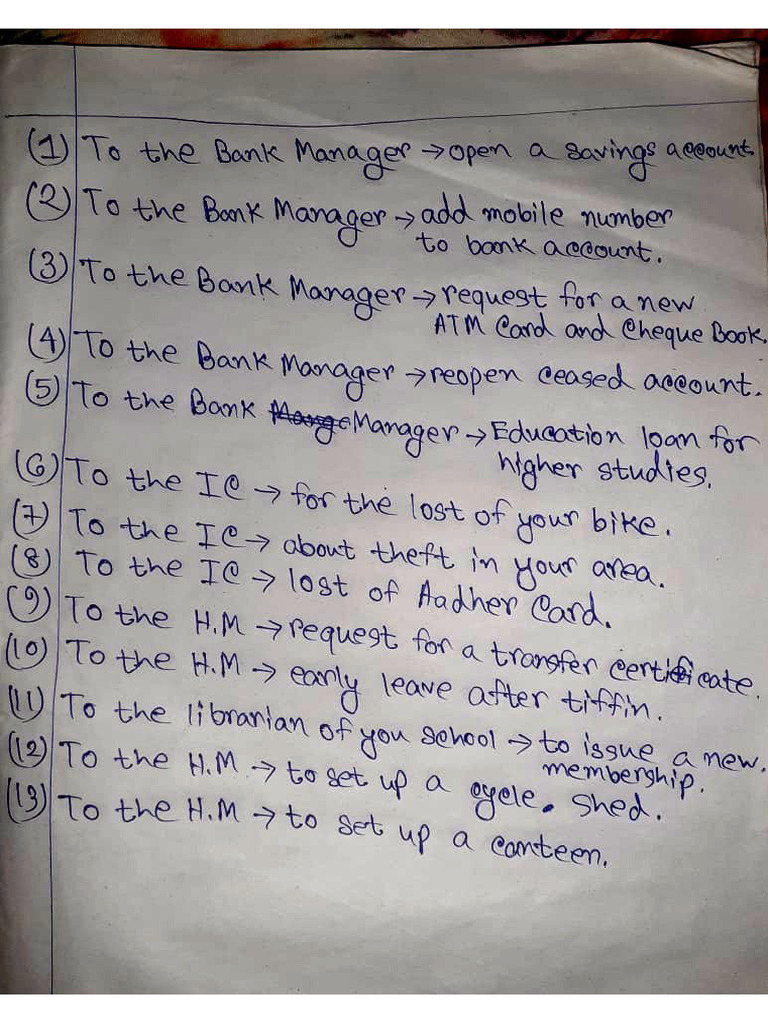 (1) To the Bank Manager → open a savings account.
(2) To the Bank Manager → add mobile number
to bank account.
(3) To the Bank Manager → request for a new
ATM Card and Cheque Book.
(4) To the Bank Manager → reopen ceased account.
(5) To the Bank Manager → Education loan for
higher studies.
(6) To the IC → for the lost of your bike.
(7) To the IC → about theft in your area.
(8) To the IC → lost of Aadher Card.
(9) To the H.M → request for a transfer certificate.
(10) To the H.M → early leave after tiffin.
(11) To the librarian of you school → to issue a new.
membership.
(12) To the H.M → to set up a cycle. shed.
(13) To the H.M → to set up a canteen.